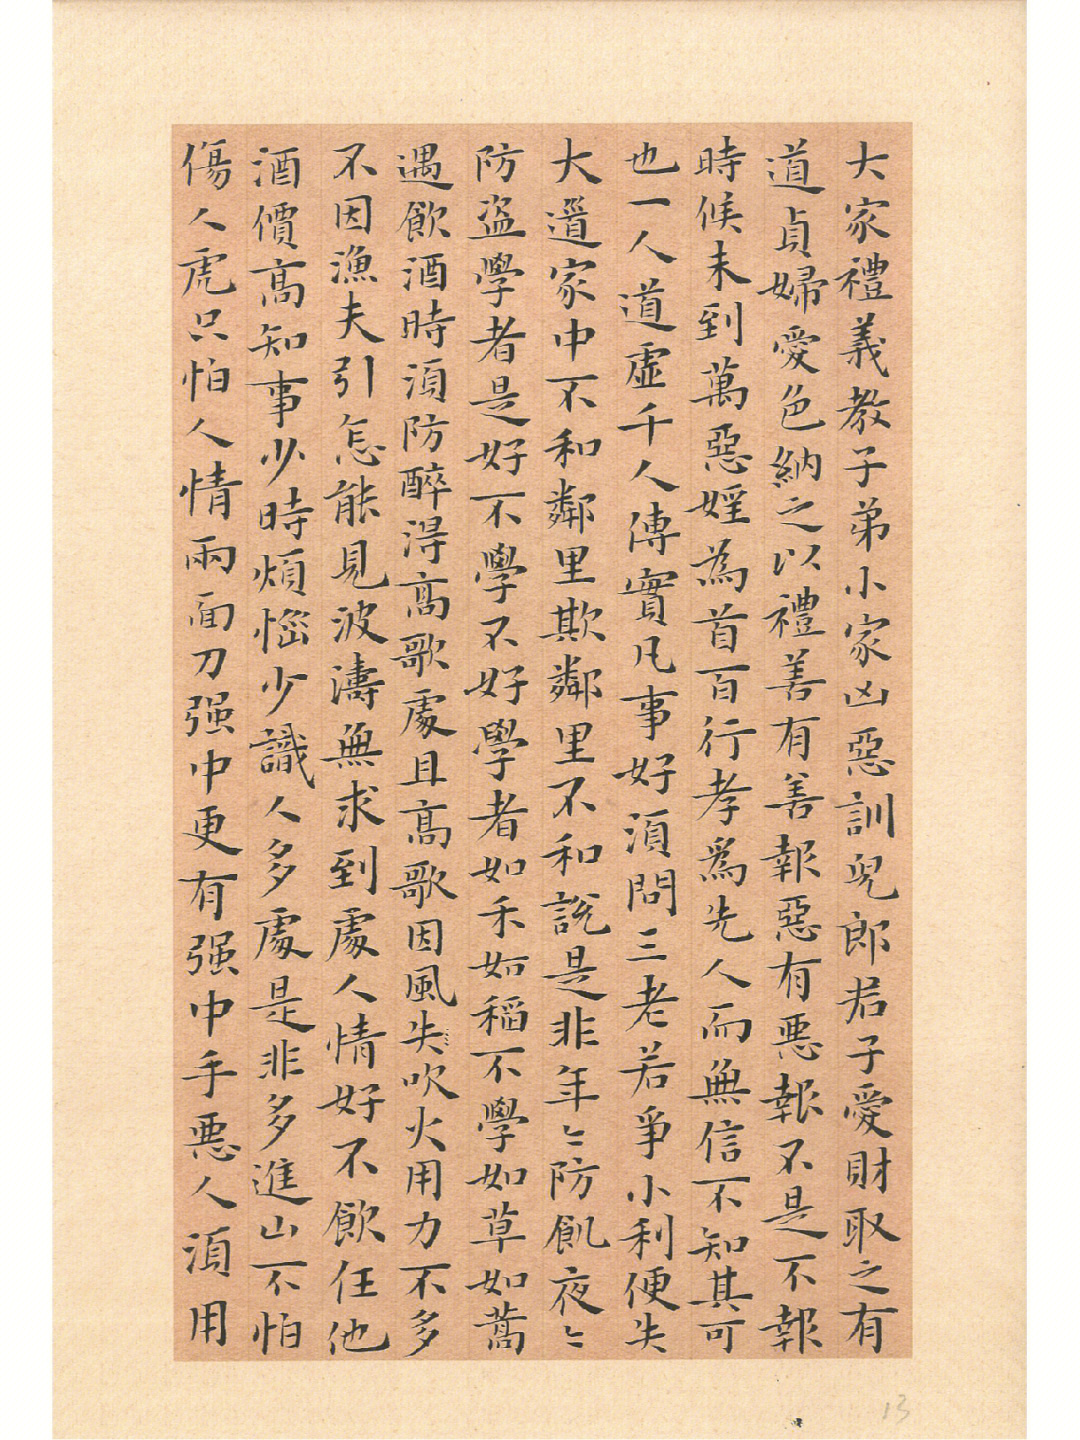 大家禮義教子弟小家凶惡訓兒郎君子愛財取之有
道貞婦愛色納之以禮善有善報惡有惡報不是不報
時候未到萬惡婬為首百行孝爲先人而無信不知其可
也一人道虛千人傳實凡事好須問三老若爭小利便失
大道家中不和鄰里欺鄰里不和說是非年〻防飢夜〻
防盜學者是好不學不好學者如禾如稻不學如草如蒿
遇飲酒時須防醉得高歌處且高歌因風失吹火用力不多
不因漁夫引怎能見波濤無求到處人情好不飲任他
酒價高知事少時煩惱少識人多處是非多進山不怕
傷人虎只怕人情兩面刀强中更有强中手惡人須用
13